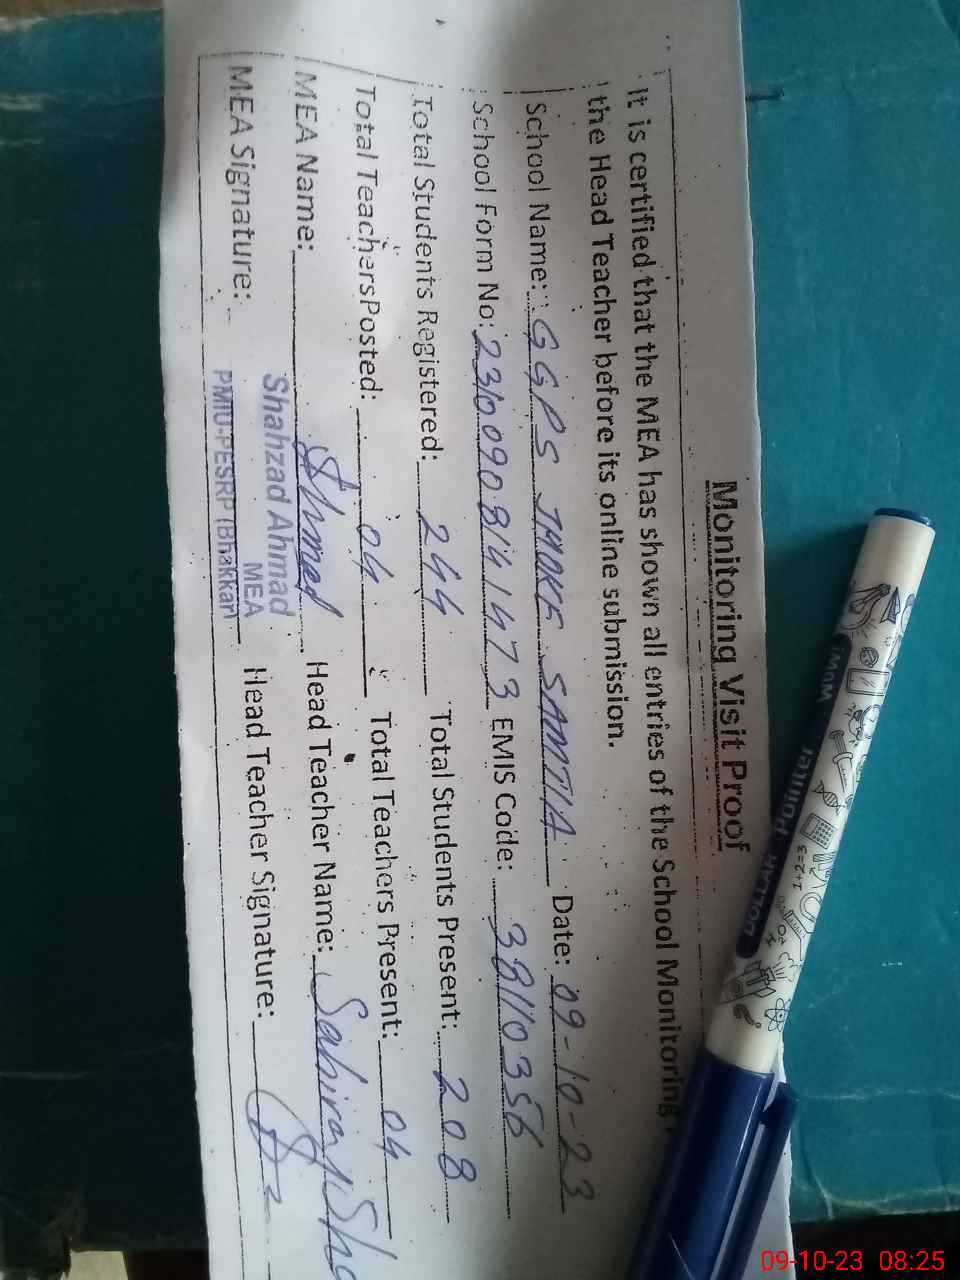 Monitoring Visit Proof
It is certified that the MEA has shown all entries of the School Monitoring
the Head Teacher before its online submission.
School Name: GGPS JHOKE SAMTIA Date: 09-10-23
School Form No: 23100908141473 EMIS Code: 38110356
Total Students Registered: 244 Total Students Present: 208
Total TeachersPosted: 04 Total Teachers Present: 04
MEA Name: Ahmed Head Teacher Name: Sabira
MEA Signature: Head Teacher Signature:
Shahzad Ahmad
MEA
PMIU-PESRP (Bhakkar)
WOW!
DOLLAR Pointer
1+2=3
H2O
09-10-23 08:25